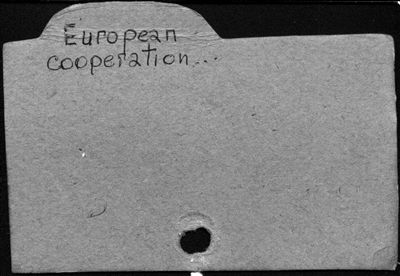 European
cooperation...